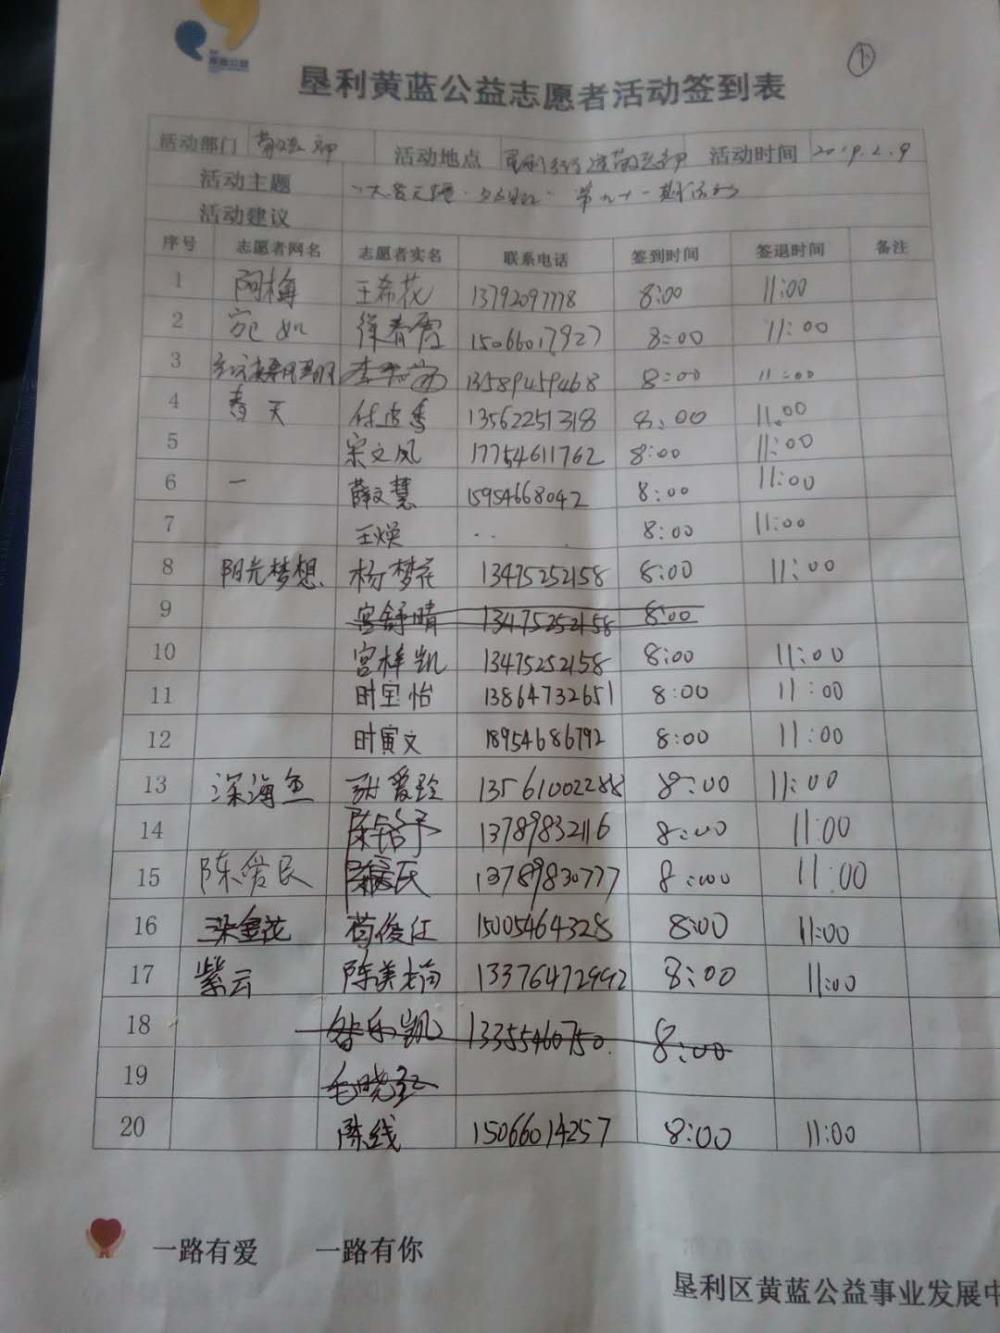 ①
垦利黄蓝公益志愿者活动签到表
活动部门 活动地点 活动时间 2019.2.9
活动主题 第九十一期活动
活动建议
序号 志愿者网名 志愿者实名 联系电话 签到时间 签退时间 备注
1 阿梅 王希花 13792097778 8:00 11:00
2 宛如 徐春霞 15066017927 8:00 11:00
3 13589459468 8:00 11:00
4 春天 13562251318 8:00 11:00
5 宋文凤 17754611762 8:00 11:00
6 一 薛文慧 15954668042 8:00 11:00
7 王焕 .. 8:00 11:00
8 阳光梦想 杨梦花 13475252158 8:00 11:00
9 宫舒晴 13475252158 8:00
10 宫梓凯 13475252158 8:00 11:00
11 时宝怡 13864732651 8:00 11:00
12 时寅文 18954686792 8:00 11:00
13 深海鱼 爱玲 13561002288 8:00 11:00
14 13789832116 8:00 11:00
15 陈爱民 13789830777 8:00 11:00
16 荀俊任 15005464328 8:00 11:00
17 紫云 陈美 13376472992 8:00 11:00
18 乐凯 13355460750 8:00
19 毛晓
20 陈线 15066014257 8:00 11:00
一路有爱 一路有你
垦利区黄蓝公益事业发展中